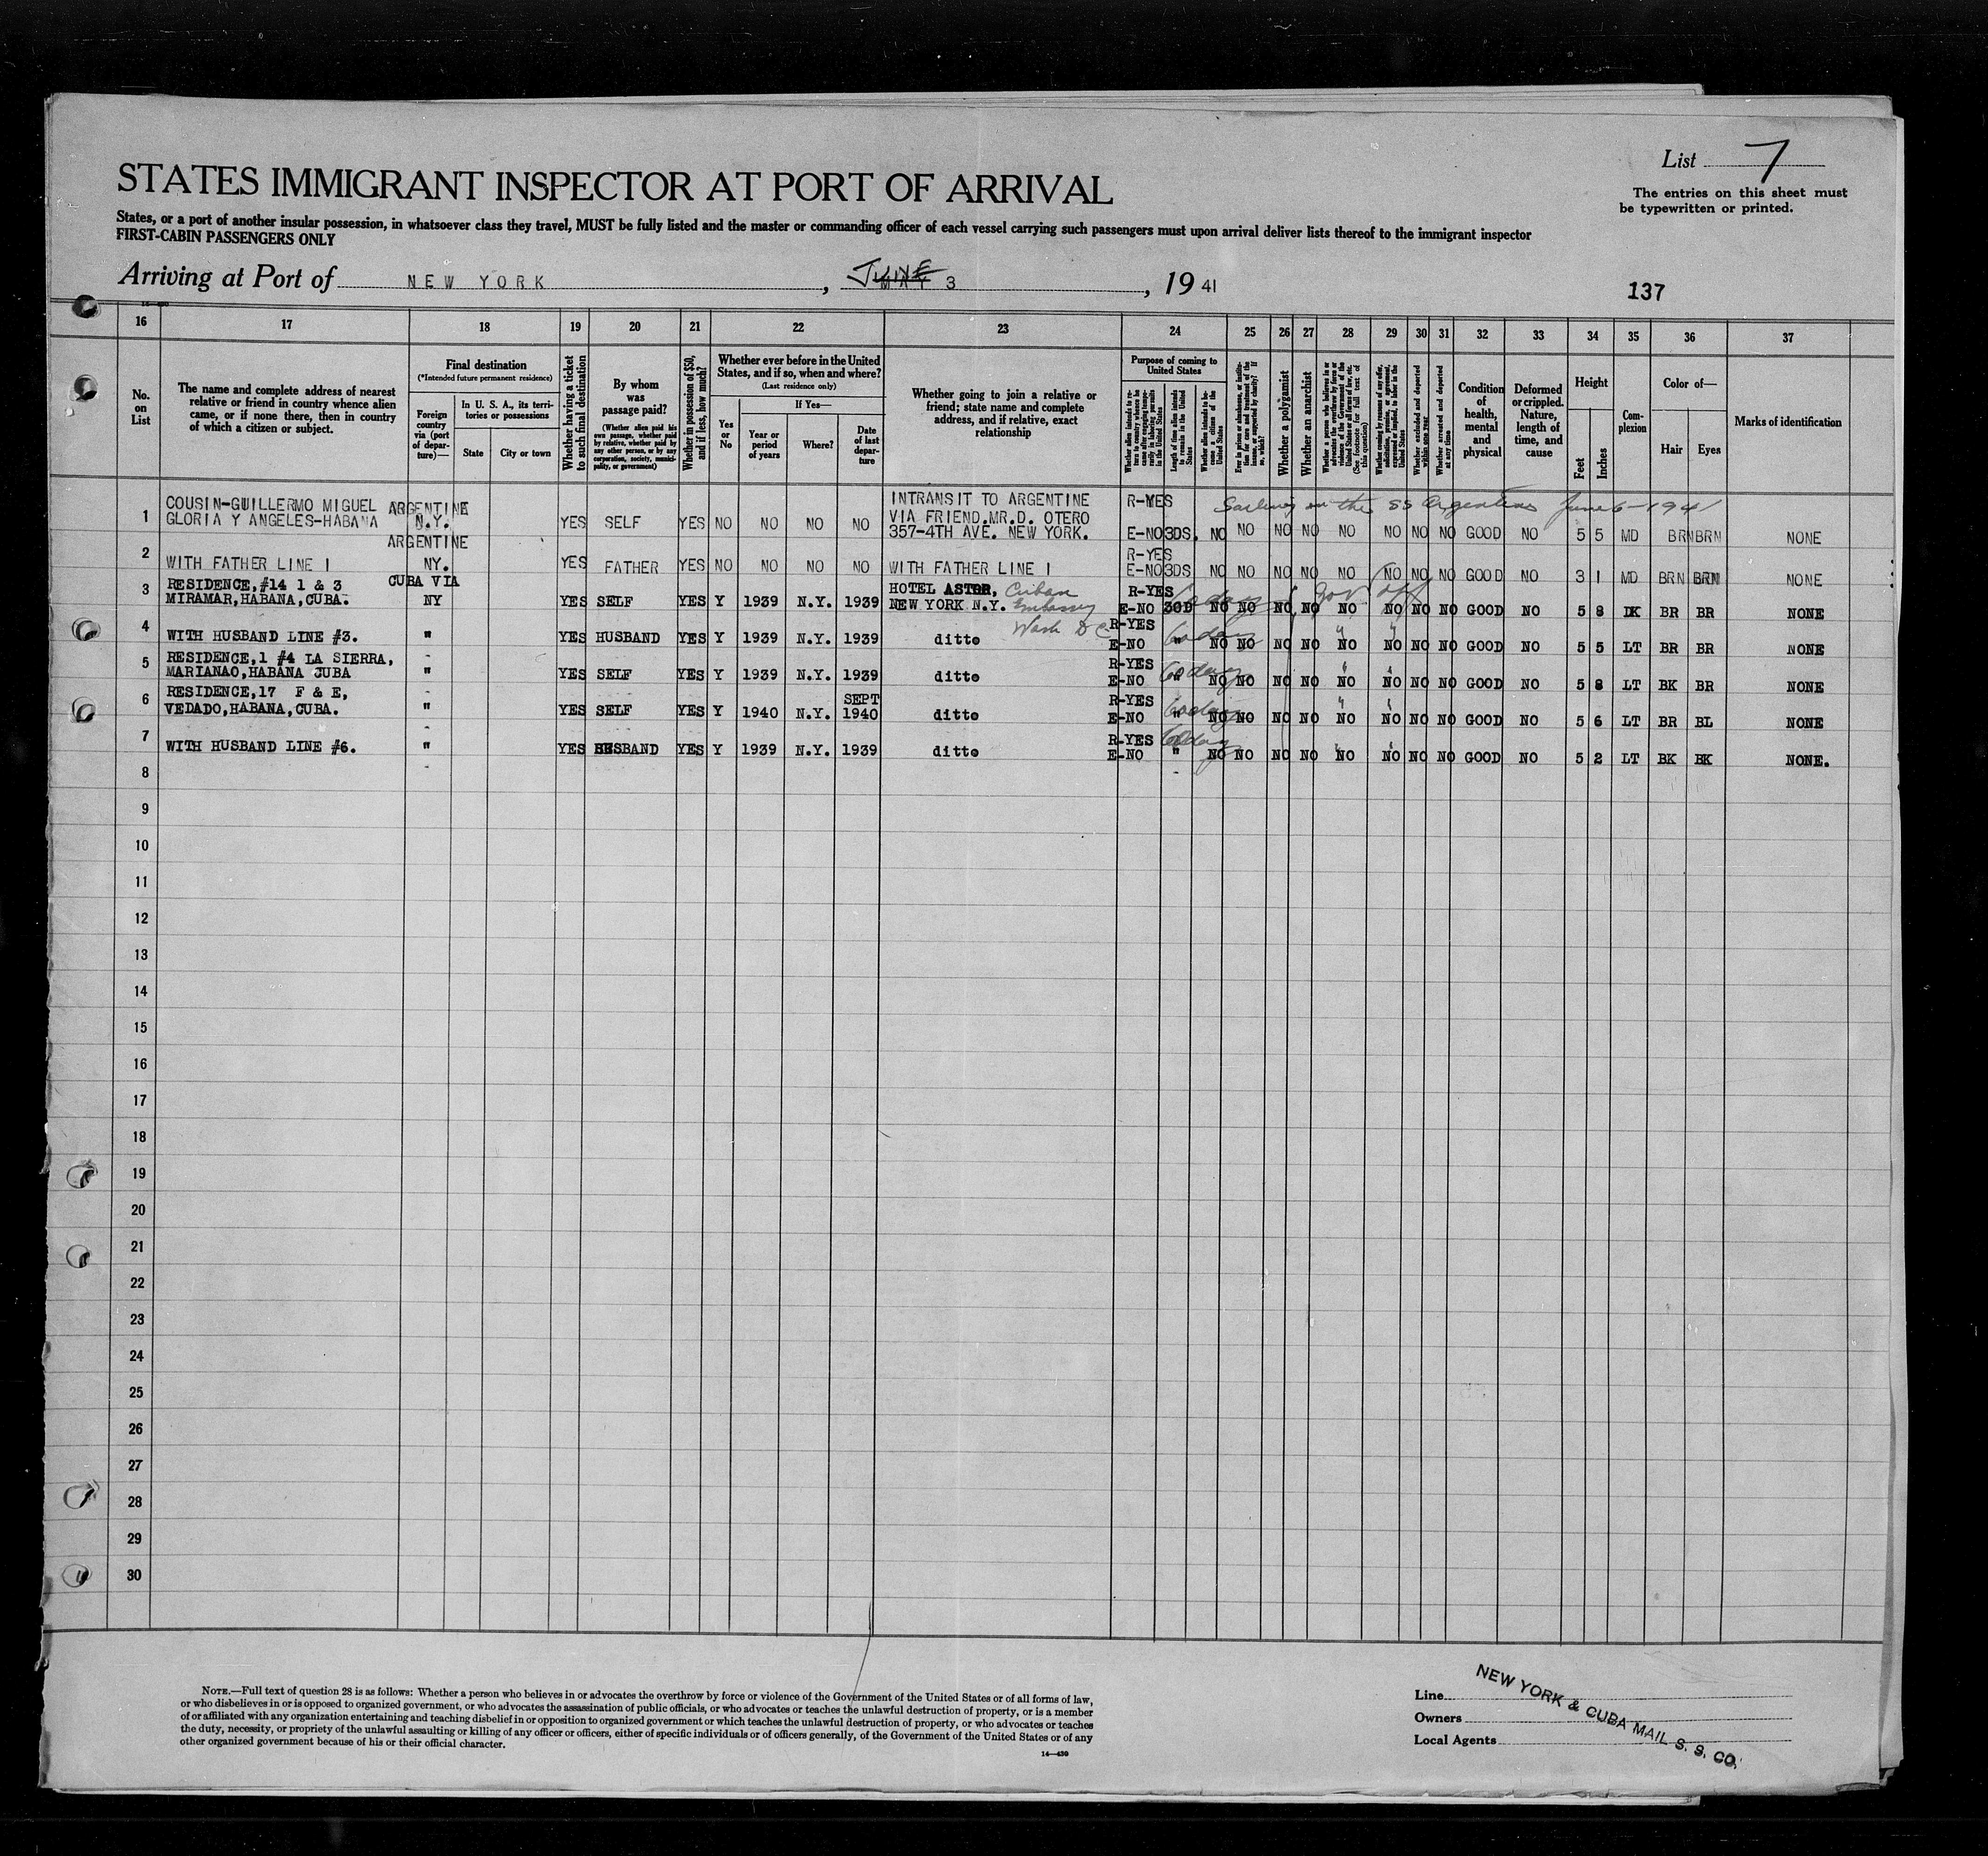 List 7
The entries on this sheet must
be typewritten or printed.
STATES IMMIGRANT INSPECTOR AT PORT OF ARRIVAL
States, or a port of another insular possession, in whatsoever class they travel, MUST be fully listed and the master or commanding officer of each vessel carrying such passengers must upon arrival deliver lists thereof to the immigrant inspector
FIRST-CABIN PASSENGERS ONLY
Arriving at Port of NEW YORK, JUNE 3, 19 41
137
16 17 18 19 20 21 22 23 24 25 26 27 28 29 30 31 32 33 34 35 36 37
No. on List
The name and complete address of nearest relative or friend in country whence alien came, or if none there, then in country of which a citizen or subject.
Final destination
(*Intended future permanent residence)
Foreign country via (port of departure)—
In U. S. A., its territories or possessions
State
City or town
Whether having a ticket to such final destination
By whom was passage paid?
(Whether alien paid his own passage, whether paid by relative, whether paid by any other person, or by any corporation, society, municipality, or government)
Whether in possession of $50, and if less, how much?
Whether ever before in the United States, and if so, when and where?
(Last residence only)
Yes or No
If Yes—
Year or period of years
Where?
Date of last departure
Whether going to join a relative or friend; state name and complete address, and if relative, exact relationship
Purpose of coming to United States
Length of time alien intends to remain in the United States
Whether alien intends to become a citizen of the United States
Whether a polygamist
Whether an anarchist
Whether excluded and deported within one year
Whether arrested and deported at any time
Condition of health, mental and physical
Deformed or crippled. Nature, length of time, and cause
Height
Feet
Inches
Complexion
Color of—
Hair
Eyes
Marks of identification
1 COUSIN-GUILLERMO MIGUEL GLORIA Y ANGELES-HABANA ARGENTINE N.Y. YES SELF YES NO NO NO NO INTRANSIT TO ARGENTINE VIA FRIEND.MR.D. OTERO 357-4TH AVE. NEW YORK. R-YES E-NO 3DS. NO NO NO NO NO NO NO NO GOOD NO 5 5 MD BRN BRN NONE
Sailing on the SS Argentina June 6-1941
2 WITH FATHER LINE 1 ARGENTINE NY. YES FATHER YES NO NO NO NO WITH FATHER LINE 1 R-YES E-NO 3DS NO NO NO NO NO NO NO NO GOOD NO 3 1 MD BRN BRN NONE
3 RESIDENCE,#14 1 & 3 MIRAMAR,HABANA,CUBA. CUBA VIA NY YES SELF YES Y 1939 N.Y. 1939 HOTEL ASTOR, NEW YORK N.Y. Cuban Embassy Wash D C R-YES E-NO 30D 60 days NO NO NO NO NO NO NO NO GOOD NO 5 8 DK BR BR NONE
Gov. Off
4 WITH HUSBAND LINE #3. " YES HUSBAND YES Y 1939 N.Y. 1939 ditto R-YES E-NO " 60 days NO NO NO NO NO NO NO NO GOOD NO 5 5 LT BR BR NONE
5 RESIDENCE,1 #4 LA SIERRA, MARIANAO,HABANA CUBA " YES SELF YES Y 1939 N.Y. 1939 ditto R-YES E-NO " 60 days NO NO NO NO NO NO NO NO GOOD NO 5 8 LT BK BR NONE
6 RESIDENCE,17 F & E, VEDADO,HABANA,CUBA. " YES SELF YES Y 1940 N.Y. SEPT 1940 ditto R-YES E-NO " 60 days NO NO NO NO NO NO NO NO GOOD NO 5 6 LT BR BL NONE
7 WITH HUSBAND LINE #6. " YES HUSBAND YES Y 1939 N.Y. 1939 ditto R-YES E-NO " 60 days NO NO NO NO NO NO NO NO GOOD NO 5 2 LT BK BK NONE.
8
9
10
11
12
13
14
15
16
17
18
19
20
21
22
23
24
25
26
27
28
29
30
NOTE.—Full text of question 28 is as follows: Whether a person who believes in or advocates the overthrow by force or violence of the Government of the United States or of all forms of law,
or who disbelieves in or is opposed to organized government, or who advocates the assassination of public officials, or who advocates or teaches the unlawful destruction of property, or is a member
of or affiliated with any organization entertaining and teaching disbelief in or opposition to organized government or which teaches the unlawful destruction of property, or who advocates or teaches
the duty, necessity, or propriety of the unlawful assaulting or killing of any officer or officers, either of specific individuals or of officers generally, of the Government of the United States or of any
other organized government because of his or their official character.
14—430
Line
Owners
Local Agents
NEW YORK & CUBA MAIL S. S. CO.